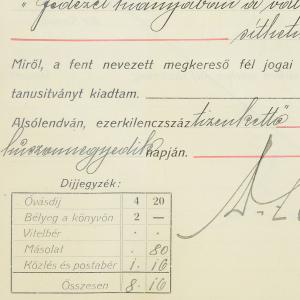 "fedezet hiányában a vál
síthető
Miről, a fent nevezett megkereső fél jogai
tanusitványt kiadtam.
Alsólendván, ezerkilenczszáz tizenkettő
huszonnegyedik napján.
Díjjegyzék:
Óvásdíj 4 20
Bélyeg a könyvön 2 —
Vitelbér . .
Másolat . 80
Közlés és postabér 1. 16
Összesen 8. 16